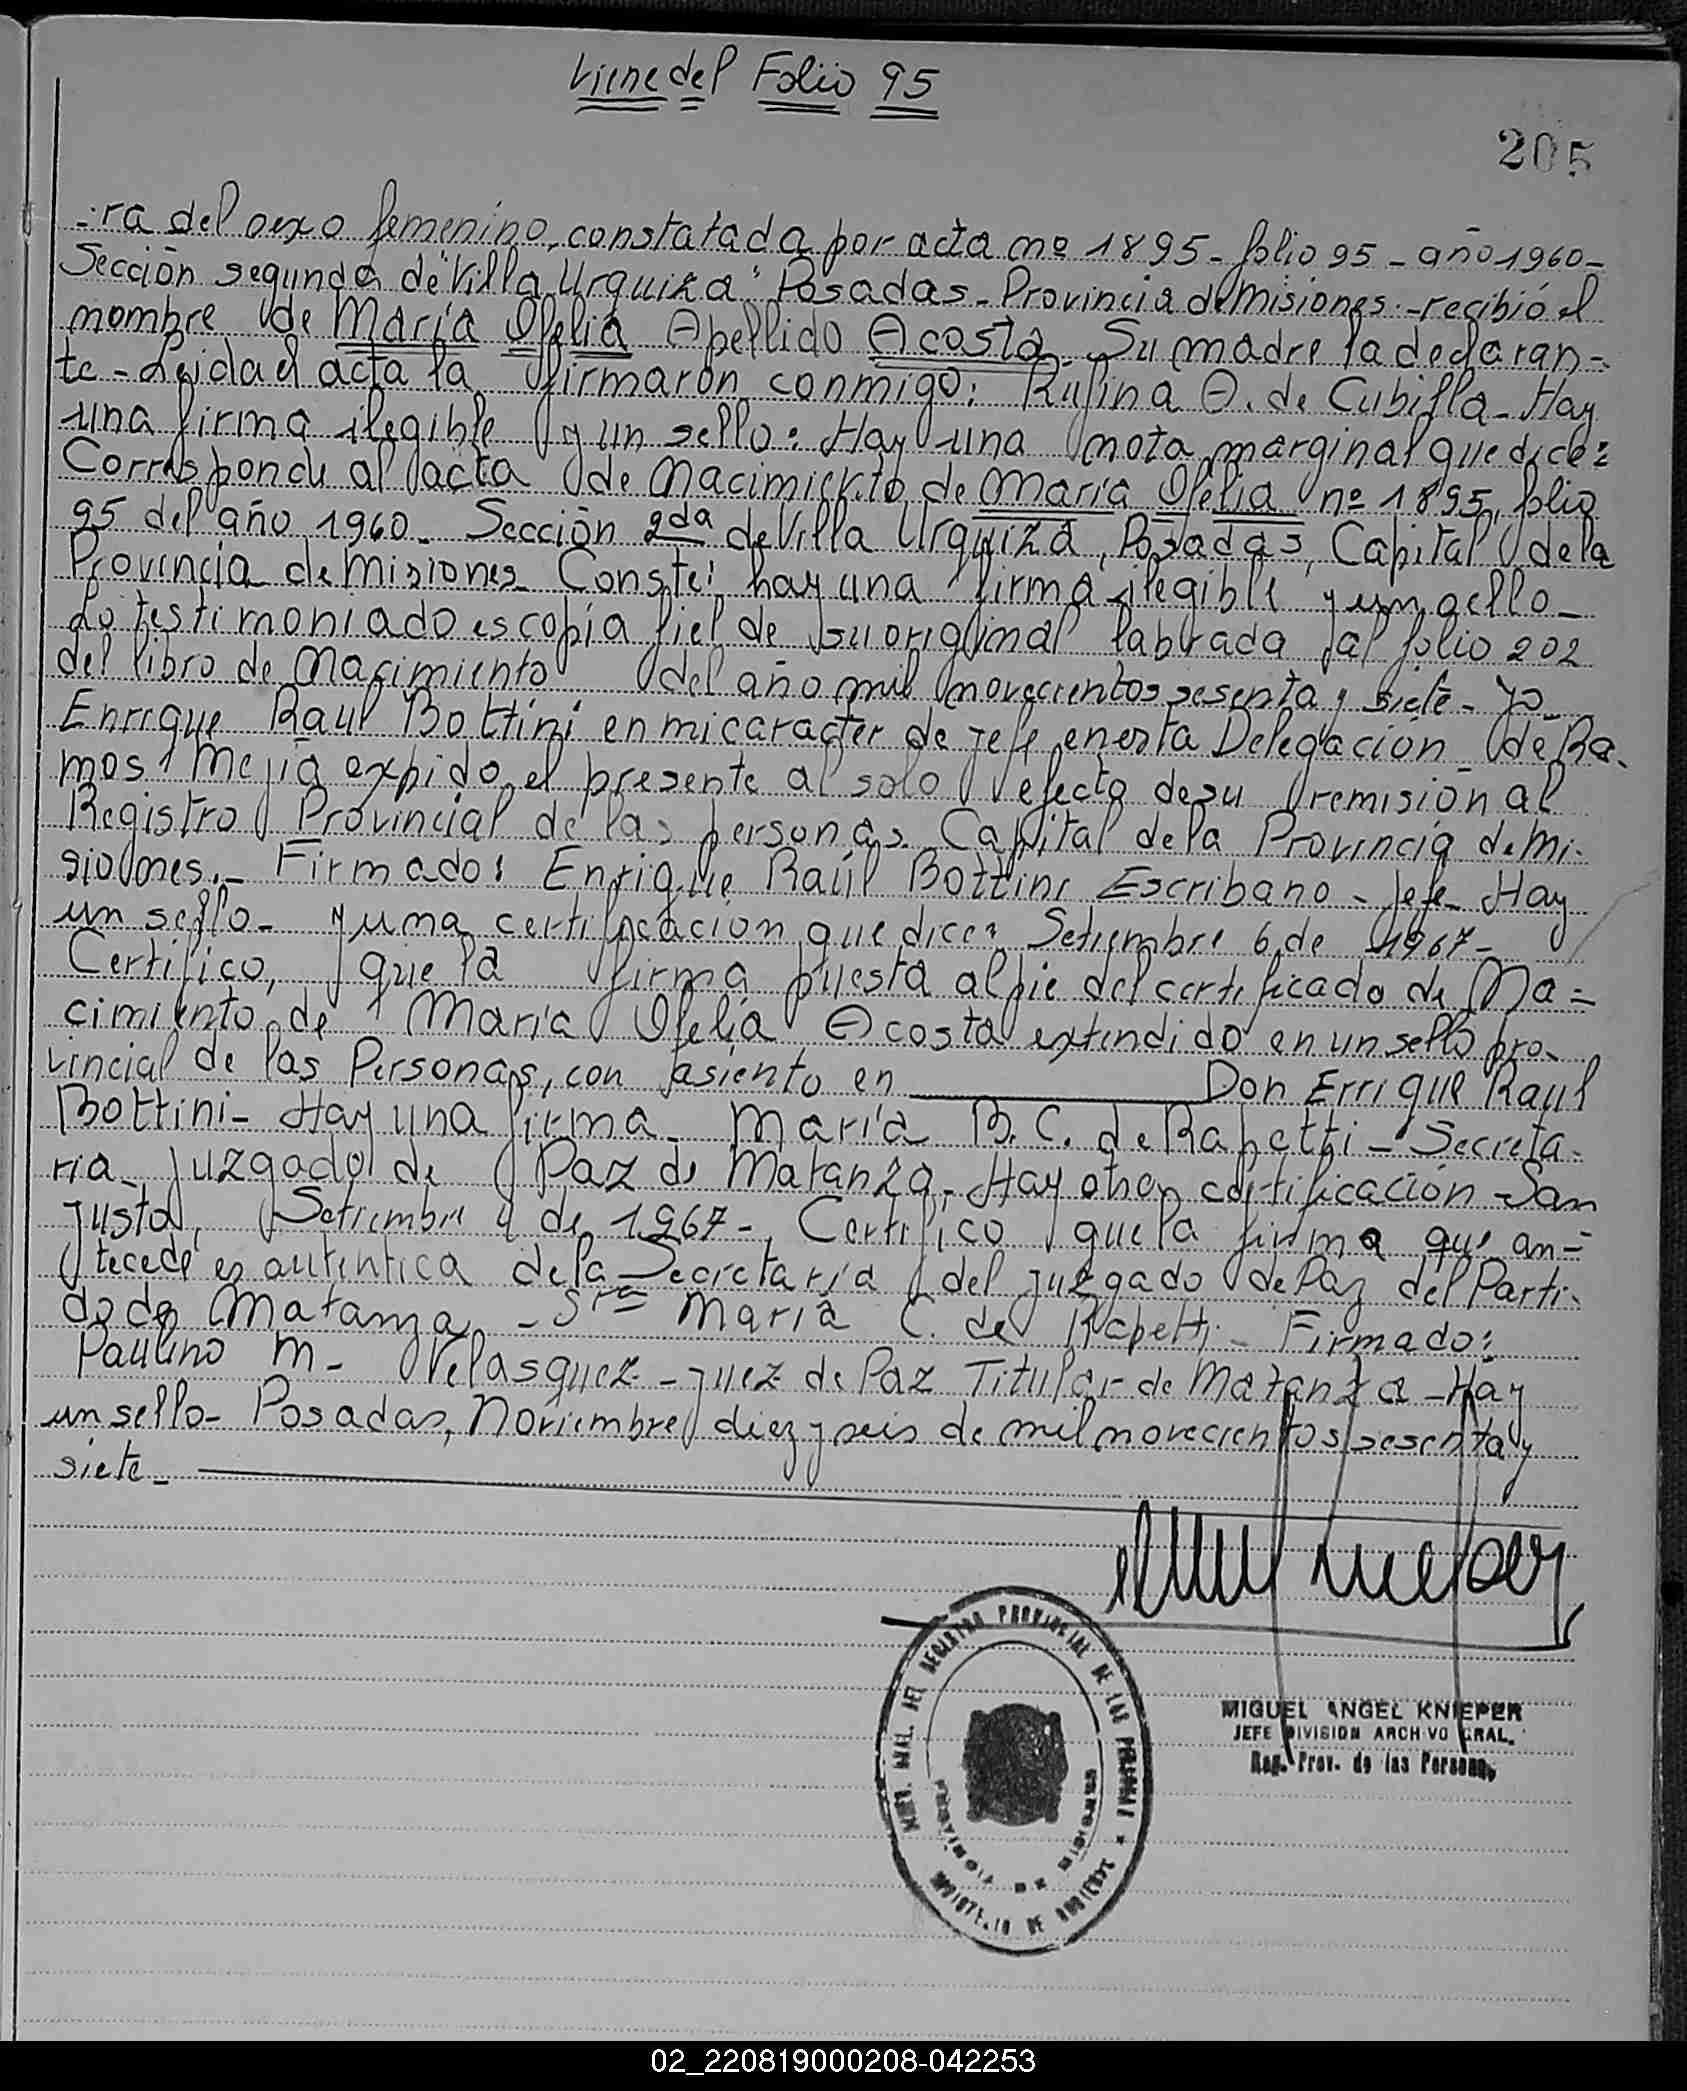 Viene del Folio 95
205
-:ra del sexo femenino, constatada por acta nº 1895 - folio 95 - año 1960 -
Sección segunda de "Villa Urquiza" Posadas - Provincia de Misiones - recibió el
nombre de María Ofelia Apellido Acosta - Su madre la declaran-
te - Leida el acta la firmaron conmigo: Rufina A. de Cubilla - Hay
una firma ilegible y un sello: Hay una nota marginal que dice:
Corresponde al acta de Nacimiento de María Ofelia nº 1895, folio
95 del año 1960 - Sección 2da de Villa Urquiza, Posadas, Capital de la
Provincia de Misiones - Conste: hay una firma ilegible y un sello -
Lo testimoniado es copia fiel de su original labrada al folio 202
del libro de Nacimiento del año mil novecientos sesenta y siete - Yo -
Enrique Raul Bottini en mi caracter de jefe en esta Delegación de Ra-
mos Mejía expido el presente al solo efecto de su remisión al
Registro Provincial de las personas Capital de la Provincia de Mi-
siones.- Firmado: Enrique Raúl Bottini Escribano - Jefe - Hay
un sello - y una certificación que dice: Setiembre 6 de 1967 -
Certifico, que la firma puesta al pie del certificado de Na=
cimiento de María Ofelia Acosta extendido en un sello pro-
vincial de las Personas, con asiento en Don Errique Raul
Bottini - Hay una firma - María B. C. de Rapetti - Secreta-
ria - Juzgado de Paz de Matanza - Hay otra certificación - San
Justo, Setiembre 4 de 1967 -, Certifico que la firma que an-
tecede es autentica de la Secretaría del Juzgado de Paz del Parti-
do de Matanza - Sra María C. de Rapetti - Firmado:
Paulino M. Velasquez - Juez de Paz Titular de Matanza - Hay
un sello - Posadas, Noviembre diez y seis de mil novecientos sesenta y
siete -
DEL REGISTRO PROVINCIAL DE LAS PERSONAS
PROVINCIA DE MISIONES
MINISTERIO DE GOBIERNO
MIGUEL ANGEL KNIEPER
JEFE DIVISION ARCHIVO GRAL.
Reg. Prov. de las Personas
02_220819000208-042253